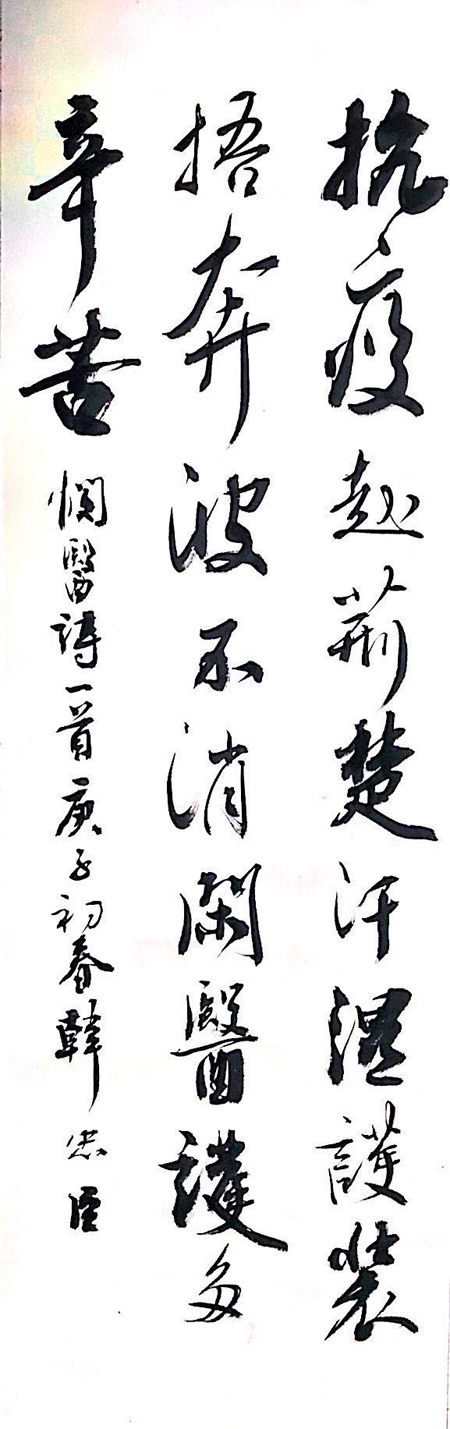 抗疫赴荊楚汗湿護裝
捂奔波不消閑醫護多
辛苦
憫醫詩一首庚子初春韓忠臣